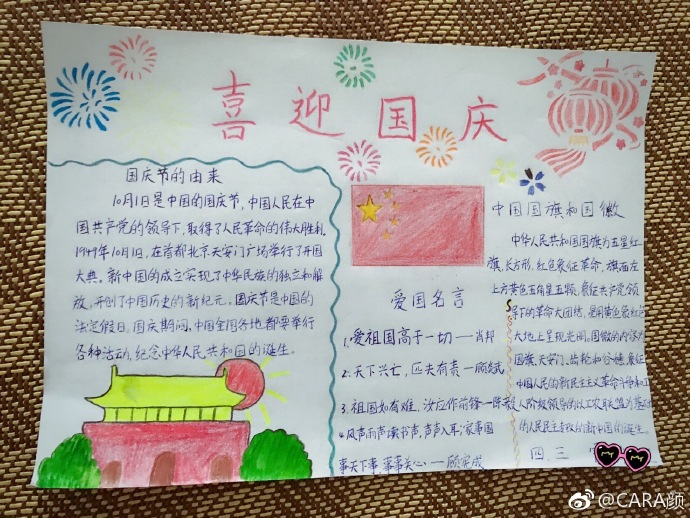 喜迎国庆
国庆节的由来
10月1日是中国的国庆节,中国人民在中
国共产党的领导下,取得了人民革命的伟大胜利.
1949年10月1日,在首都北京天安门广场举行了开国
大典。新中国的成立实现了中华民族的独立和解
放,开创了中国历史的新纪元。国庆节是中国的
法定假日,国庆期间,中国全国各地都要举行
各种活动,纪念中华人民共和国的诞生。
爱国名言
1.爱祖国高于一切——肖邦
2.天下兴亡,匹夫有责—顾炎武
3.祖国如有难,汝应作前锋—陈毅
4.风声雨声读书声,声声入耳;家事国
事天下事,事事关心——顾宪成
中国国旗和国徽
中华人民共和国国旗为五星红
旗,长方形,红色象征革命,旗面左
上方黄色五角星五颗,象征共产党领
导下的革命大团结,星用黄色象红色
大地上呈现光明。国徽的内容为
国旗、天安门、齿轮和谷穗,象征
中国人民的新民主主义革命斗争和工
人阶级领导的以工农联盟为基础
的人民民主专政的新中国的诞生。
四.三
@CARA颜